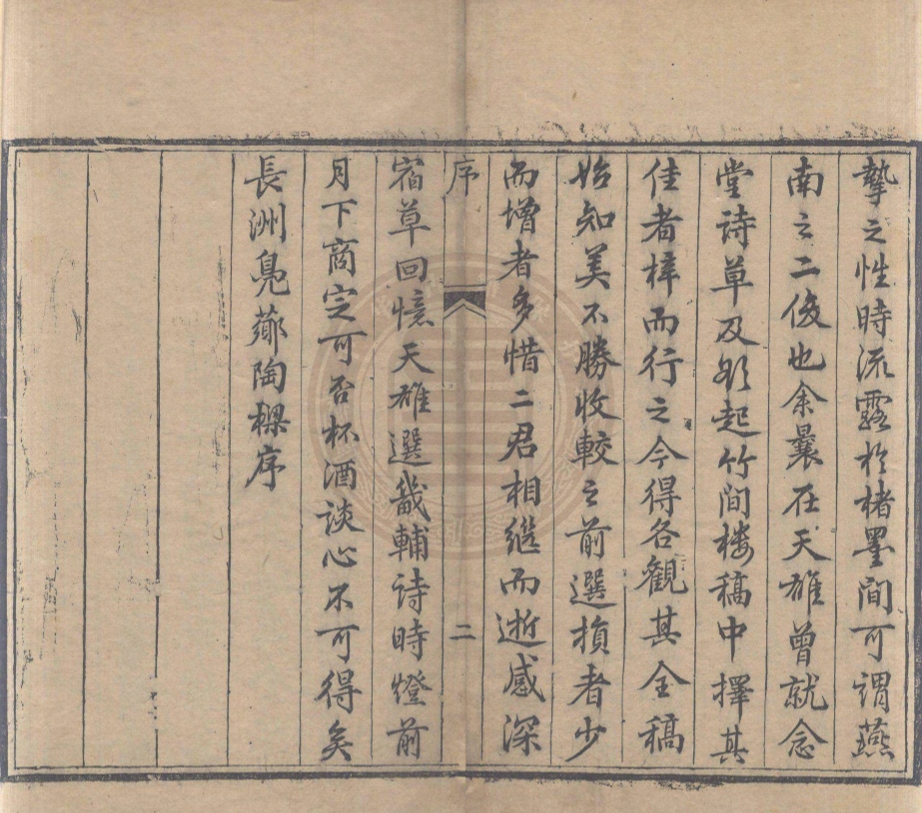 摯之性時流露於楮墨間可謂燕
南之二俊也余曩在天雄曾就念
堂詩草及起竹間樓稿中擇其
佳者梓而行之今得各觀其全稿
始知美不勝收較之前選損者少
而增者多惜二君相繼而逝感深
序 二
宿草回憶天雄選畿輔詩時燈前
月下商定可否杯酒談心不可得矣
長洲鳧薌陶樑序